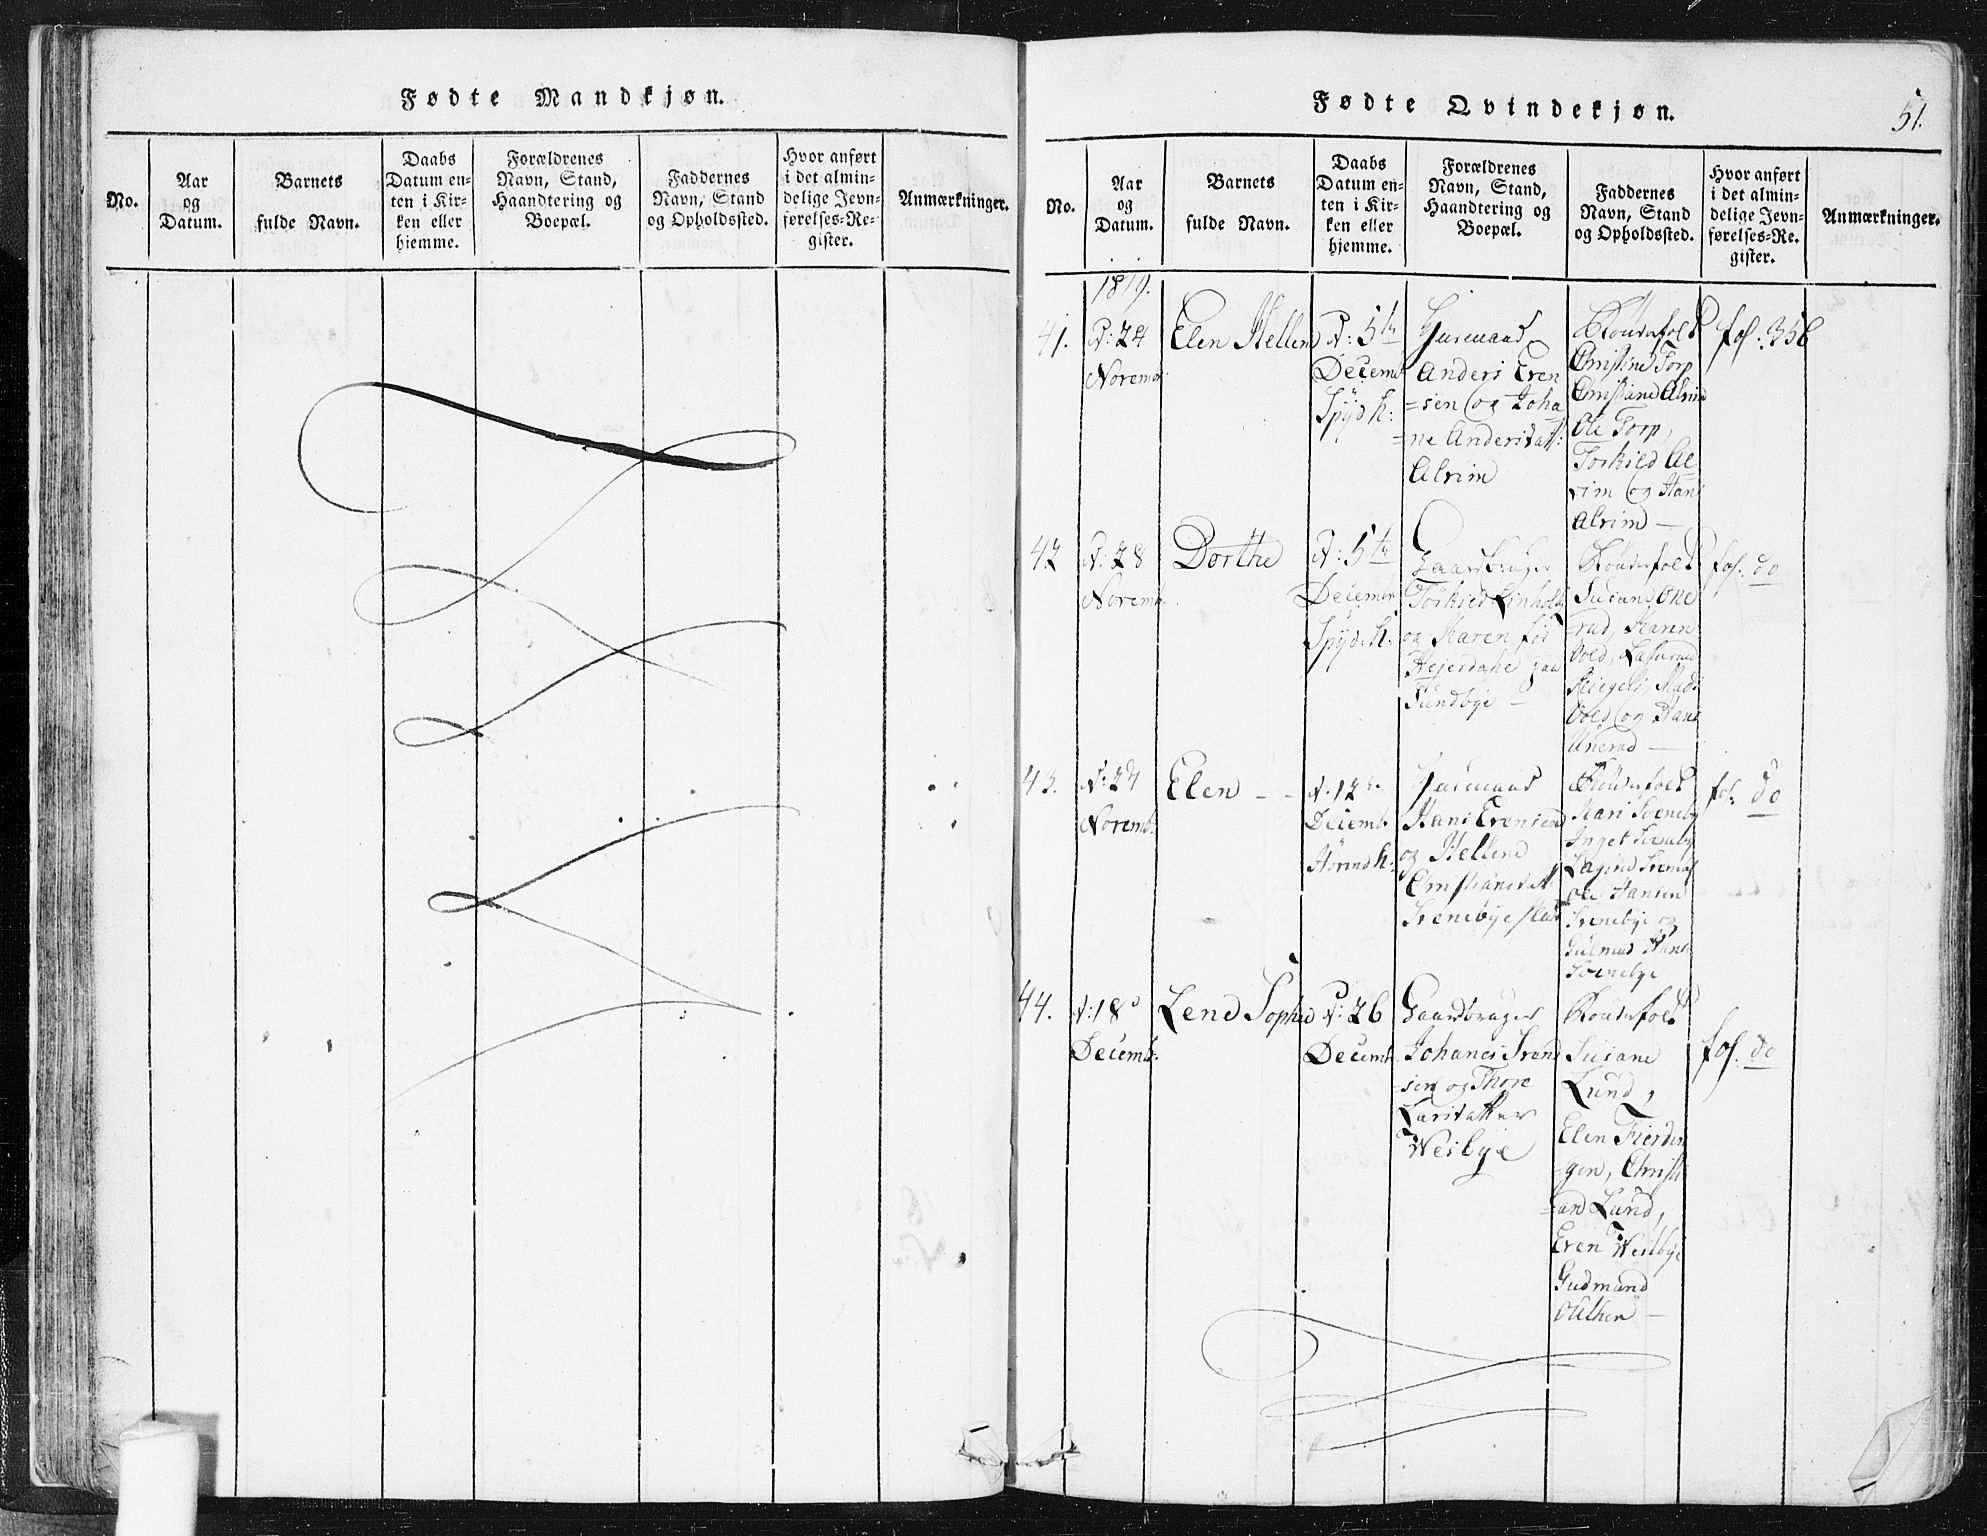 Fødte Mandkjøn.
No.
Aar
og
Datum.
Barnets
fulde Navn.
Daabs
Datum en-
ten i Kir-
ken eller
hjemme.
Forældrenes
Navn, Stand,
Haandtering og
Boepæl.
Faddernes
Navn, Stand
og Opholdssted.
Hvor anført
i det almin-
delige Jevn-
førelses-Re-
gister.
Anmærkninger.
Fødte Qvindekjøn.
51.
No.
Aar
og
Datum.
Barnets
fulde Navn.
Daabs
Datum en-
ten i Kir-
ken eller
hjemme.
Forældrenes
Navn, Stand,
Haandtering og
Boepæl.
Faddernes
Navn, Stand
og Opholdssted.
Hvor anført
i det almin-
delige Jevn-
førelses-Re-
gister.
Anmærkninger.
1819.
41.
d: 24
Novemb
Elen Hellene
d: 5te
Decemb
Spyd h:
Huusmand
Anders Even
=sen og Joha
=ne Andersdatt:
Alvim
Bonderfolk
Christine Torp
Christiane Alvim
Ole Torp,
Torkild Al
vim og Hans
Alvim —
fol: 356
42
d: 28
Novemb.
Dorthe
d: 5te
Decembr
Spyd: h.
Gaardbruger
Torkild
og Karen fød
Hejerdahl paa
Tundbye —
Bonderfolk
Susane One
=rad, Karen
Vold,
Mads
Vold og Hans
Unerad —
fol. do
43.
d: 27
Novemb.
Elen — -
d. 12te
Decemb.
h:
Huusmand
Hans Evensen
og Hellene
Christiansdatt
Svenebye
Bonderfolk
Kari Sveneby
Inger Sveneby
Ole Hansen
Svenebye og
Gulmund Hans
Svenebye
fol. do
44.
d: 18de
Decemb:
Lene Sophie
d: 26
Decemb.
Gaardbruger
Johanes Svend
sen og Thore
Larsdatter
Wesbye
Bonderfolk
Susane
Lund,
Elen Fierdin
=gen, Christi
=an Lund,
Even Wesbye
Gudmund
—
fol. do